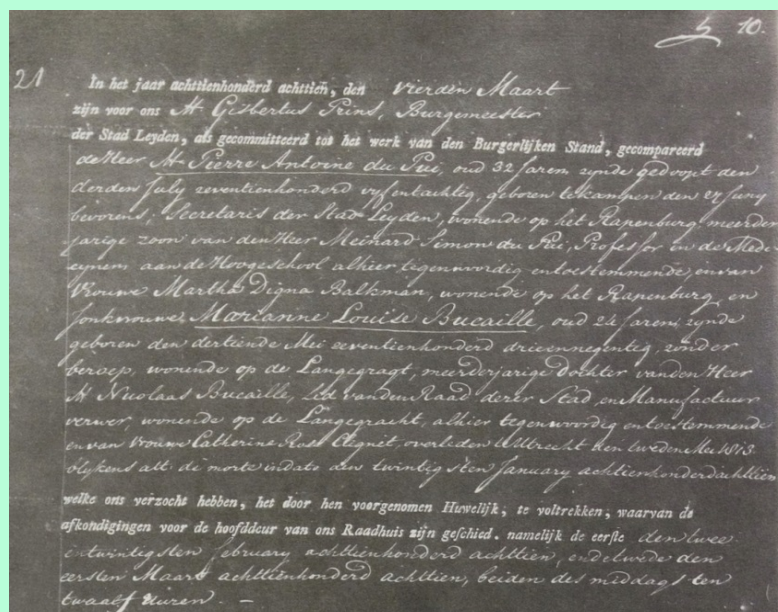 5 10.
21
In het jaar achttienhonderd achttien, den vierden Maart
zijn voor ons Mr Gisbertus Prins, Burgemeester
der Stad Leyden, als gecommitteerd tot het werk van den Burgerlijken Stand, gecompareerd
de Heer Mr Pierre Antoine du Pui, oud 32 Jaren zynde gedoopt den
derden July zeventienhonderd vyfentachtig, geboren te kampen den 27 Juny
bevorens, Secretaris der Stad Leyden, wonende op het Rapenburg, meerder
jarige zoon van den Heer Meinard Simon du Pui, Professor in de Mede
cynen aan de Hoogeschool alhier tegenwoordig en toestemmende, en van
Vrouwe Martha Digna Balkman, wonende op het Rapenburg, en
Jonkvrouwe Marianne Louise Bucaille, oud 24 Jaren, zynde
geboren den dertiende Mei zeventienhonderd drieennegentig, zonder
beroep, wonende op de Langegragt, meerderjarige Dochter van den Heer
Nicolaas Bucaille, Lid van den Raad dezer Stad, en Manufactuur
verwer, wonende op de Langegracht, alhier tegenwoordig en toestemmende
en van Vrouwe Catherine Rose overleden te Utrecht den tweden Mei 1813
blykens de morte in dato den twintigsten January achttienhonderd achttien
welke ons verzocht hebben, het door hen voorgenomen Huwelijk, te voltrekken, waarvan de
afkondigingen voor de hoofddeur van ons Raadhuis zijn geschied. namelijk de eerste den twee
entwintigsten february achttienhonderd achttien, en de twede den
eersten Maart achttienhonderd achttien, beiden des middags ten
twaalf uuren. —